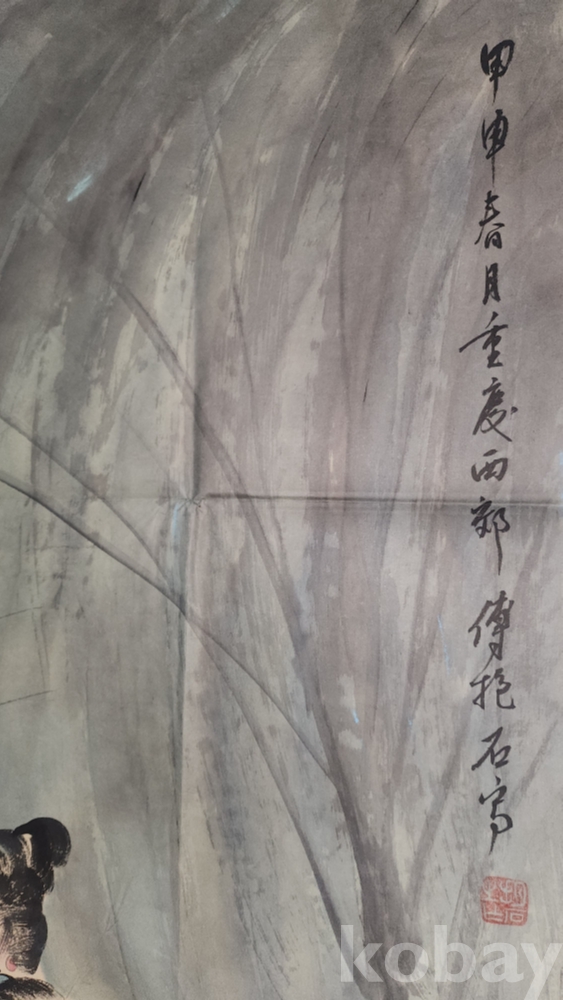 甲申春月重慶西郊傅抱石寫
kobay